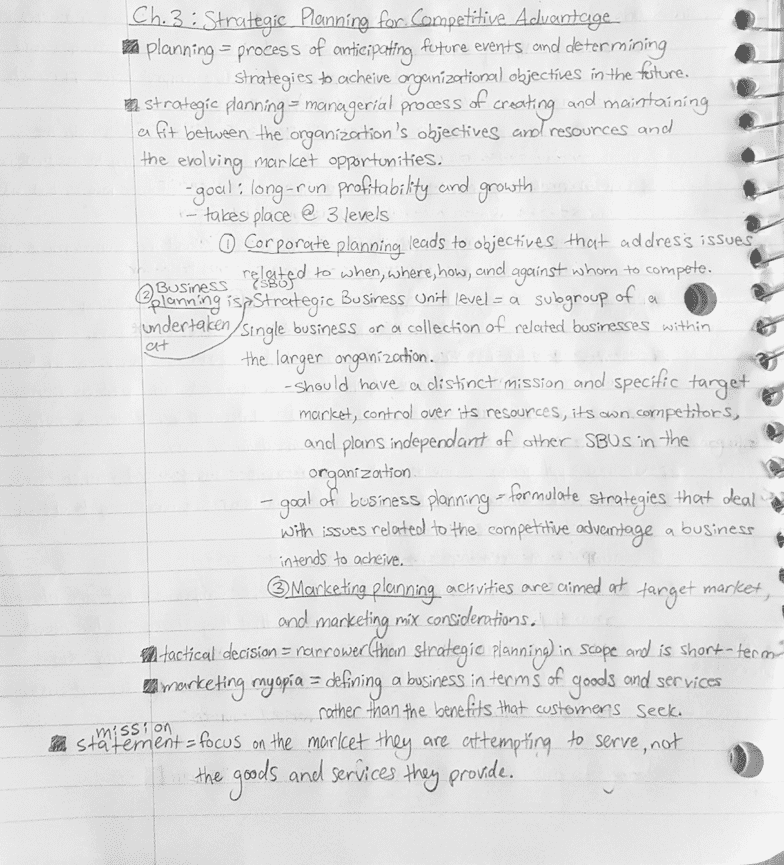 Ch. 3 : Strategic Planning for Competitive Advantage
planning = process of anticipating future events and determining
strategies to acheive organizational objectives in the future.
strategic planning = managerial process of creating and maintaining
a fit between the organization's objectives and resources and
the evolving market opportunities.
- goal : long-run profitability and growth
- takes place @ 3 levels
① Corporate planning leads to objectives that address issues
related to when, where, how, and against whom to compete.
② Business planning is undertaken at
(SBU)
Strategic Business Unit level = a subgroup of a
single business or a collection of related businesses within
the larger organization.
- should have a distinct mission and specific target
market, control over its resources, its own competitors,
and plans independant of other SBUs in the
organization
- goal of business planning = formulate strategies that deal
with issues related to the competitive advantage a business
intends to acheive.
③ Marketing planning activities are aimed at target market,
and marketing mix considerations.
tactical decision = narrower (than strategic planning) in scope and is short-term
marketing myopia = defining a business in terms of goods and services
rather than the benefits that customers seek.
mission
statement = focus on the market they are attempting to serve, not
the goods and services they provide.